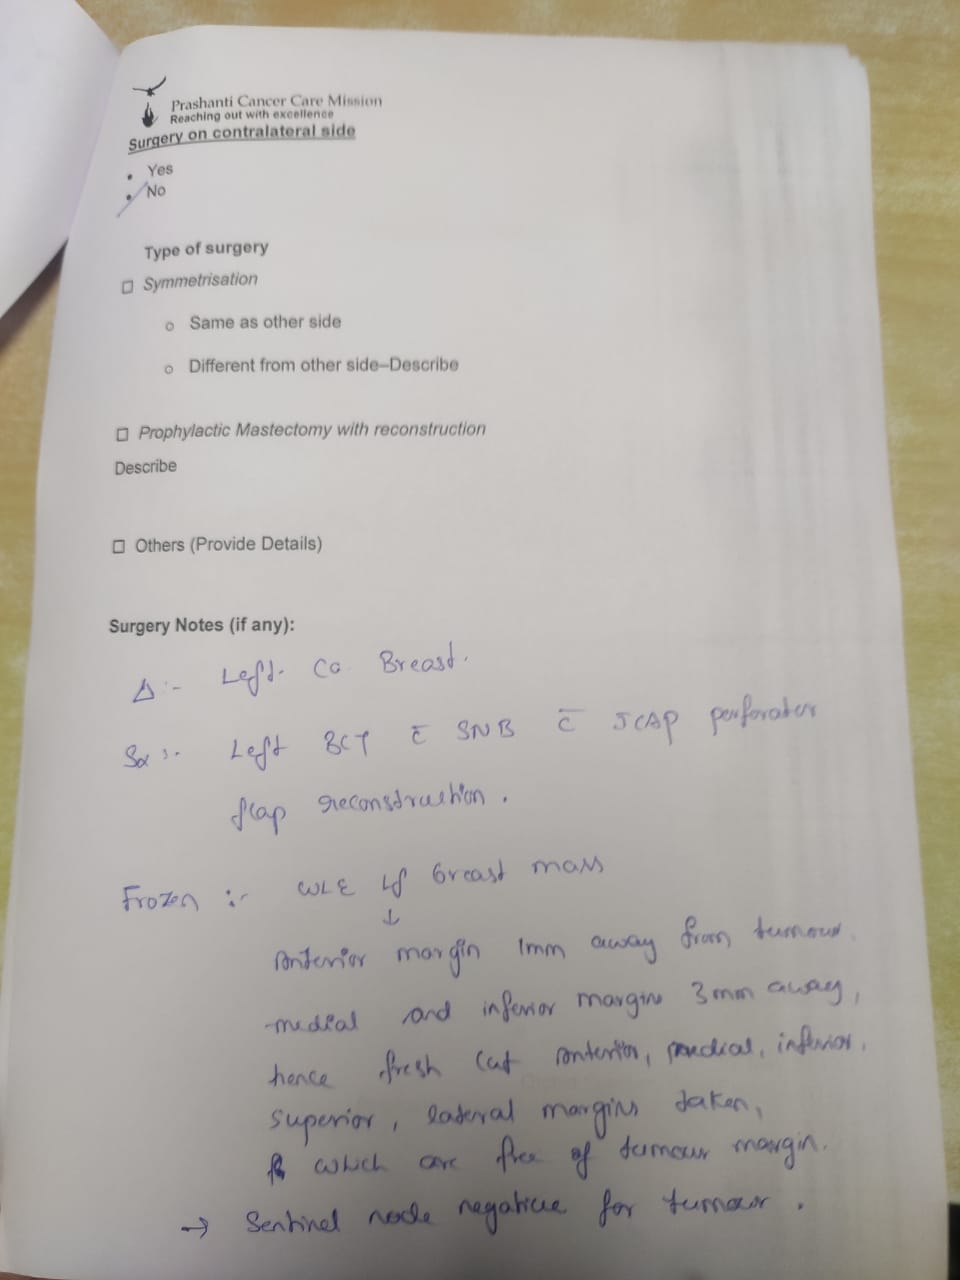 Prashanti Cancer Care Mission
Reaching out with excellence
Surgery on contralateral side
• Yes
• No
Type of surgery
☐ Symmetrisation
o Same as other side
o Different from other side–Describe
☐ Prophylactic Mastectomy with reconstruction
Describe
☐ Others (Provide Details)
Surgery Notes (if any):
Δ:- Left Ca Breast.
Sx :- Left BCT c̄ SNB c̄ JCAP perforator
flap reconstruction.
Frozen :- WLE lf breast mass
↓
Anterior margin 1mm away from tumour.
medial and inferior margins 3mm away,
hence fresh cut anterior, medial, inferior,
superior, lateral margins taken,
which are free of tumour margin.
→ Sentinel node negative for tumour.